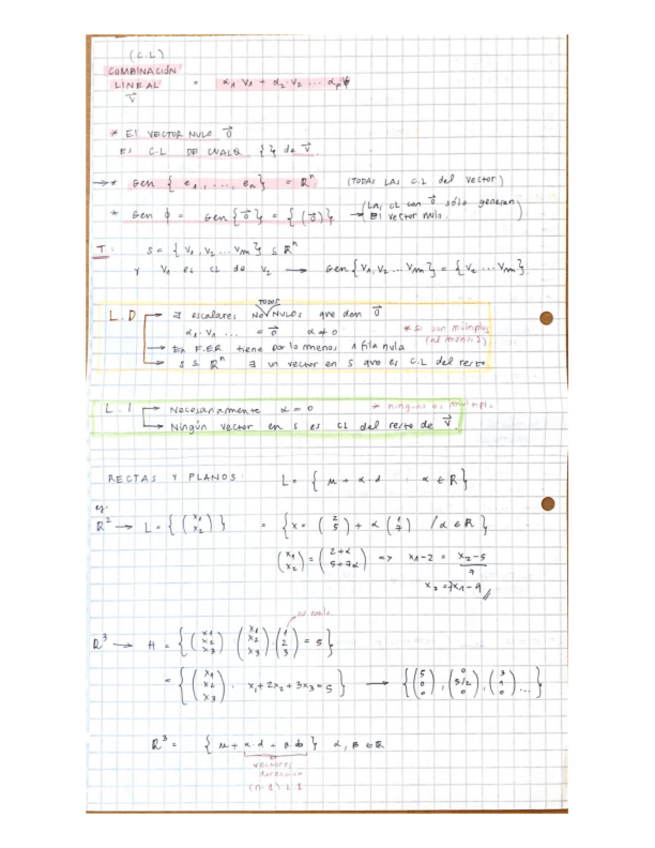 (C.L)
COMBINACIÓN
LINEAL = α₁·V₁ + α₂·V₂ ... αₚ
V⃗
* El VECTOR NULO 0⃗
ES C.L DE CUALQ { } de V⃗.
→* Gen { e₁, ..., eₙ } = ℝⁿ (TODAS LAS C.L del vector)
* Gen ϕ = Gen {0⃗} = { (0⃗) } → (LAS CL con 0⃗ sólo generan
El vector nulo.)
T: S = { V₁, V₂ ... Vm } ⊆ ℝⁿ
y V₁ es CL de V₂ → Gen{ V₁, V₂ ... Vm } = { V₂ ... Vm }
TODOS
L.D → ∃ escalares NO NULOS que dan 0⃗
α₁·V₁ ... = 0⃗ α ≠ 0 * Si son múltiplos
→ En F.ER tiene por lo menos 1 fila nula (al menos 1)
→ S ⊆ ℝⁿ ∃ un vector en S que es C.L del resto
L.I → Necesariamente α = 0 * ninguno es múltiplo
→ Ningún vector en S es CL del resto de V⃗.
RECTAS Y PLANOS: L = { μ + α·d α ∈ ℝ }
ej:
ℝ² → L = { (x₁ x₂) } = { x = (2 5) + α (1 7) / α ∈ ℝ }
(x₁ x₂) = (2+α 5+7α) => x₁-2 = x₂-5 / 7
x₂ = 7x₁ - 9
no nulo
ℝ³ → H = { (x₁ x₂ x₃) (x₁ x₂ x₃)·(1 2 3) = 5 }
= { (x₁ x₂ x₃) . x₁ + 2x₂ + 3x₃ = 5 } → { (5 0 0), (0 5/2 0), (3 1 0) ... }
ℝ³ = { μ + α·d + β·b } α, β ∈ ℝ
vectores
dirección
(n-1) L I